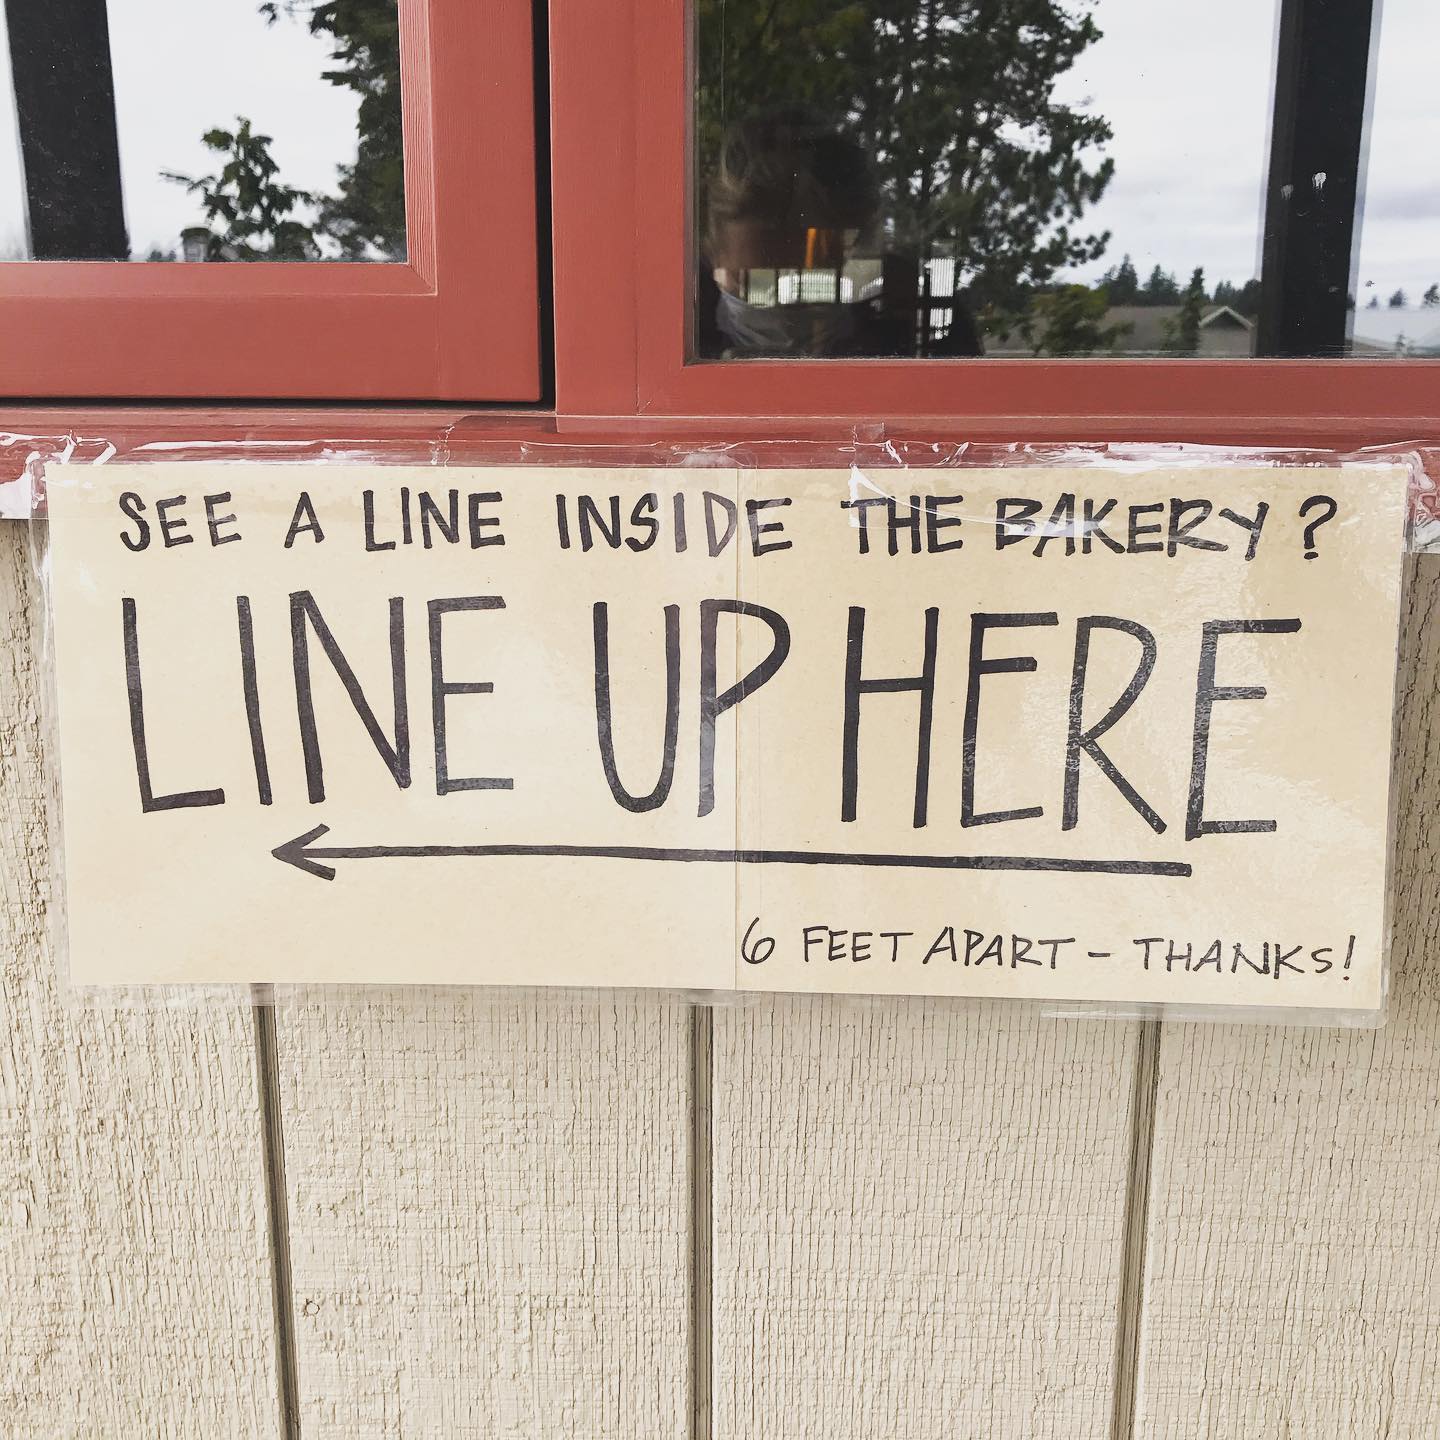 SEE A LINE INSIDE THE BAKERY?
LINE UP HERE
6 FEET APART - THANKS!